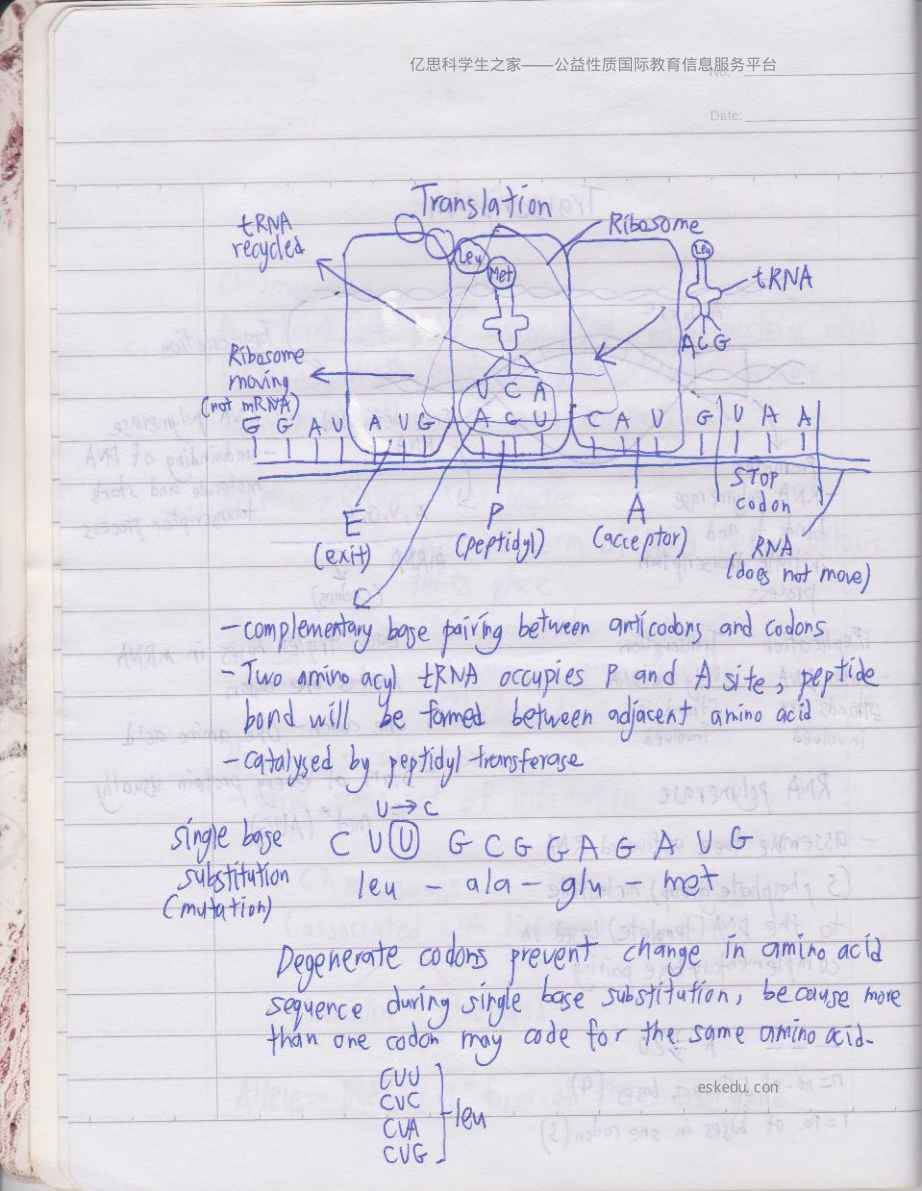 亿思科学生之家——公益性质国际教育信息服务平台
No.
Date:
Translation
tRNA
recycled
Ribosome
Leu
Met
Leu
tRNA
ACG
Ribosome
moving
(not mRNA)
U C A
G G A U A U G A G U C A U G U A A
STOP
codon
E
(exit)
P
(peptidyl)
A
(acceptor)
RNA
(does not move)
- complementary base pairing between anticodons and codons
- Two amino acyl tRNA occupies P and A site, peptide
bond will be formed between adjacent amino acid
- catalysed by peptidyl transferase
U → C
single base
substitution
(mutation)
C U U G C G G A G A U G
leu - ala - glu - met
Degenerate codons prevent change in amino acid
sequence during single base substitution, because more
than one codon may code for the same amino acid.
CUU
CUC
CUA
CUG
leu
eskedu.con